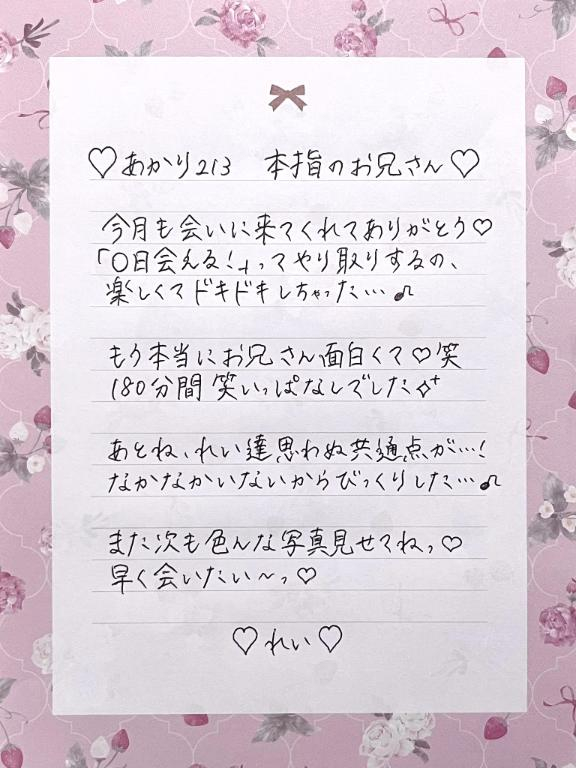 ♡あかり213 本指のお兄さん♡
今月も会いに来てくれてありがとう♡
「〇日会える!」ってやり取りするの、
楽しくてドキドキしちゃった…♪
もう本当にお兄さん面白くて♡笑
180分間笑いっぱなしでした✧⁺
あとね、れい達思わぬ共通点が…!
なかなかいないからびっくりした…♪
また次も色んな写真見せてねっ♡
早く会いたい〜っ♡
♡れい♡